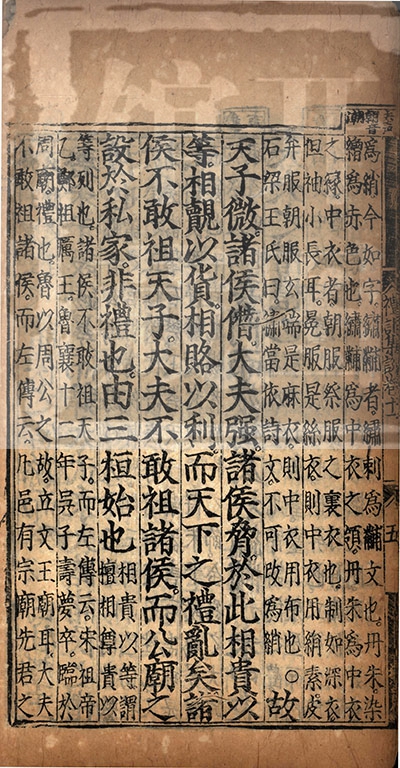 為綃今如字繡黼者繡刺為黼文也丹朱染
繒為赤色也繡黼為中衣之領丹朱為中衣
之緣中衣者朝服祭服之裏衣也制如深衣
但袖小長耳冕服是絲衣則中衣用綃素皮
弁服朝服玄端是麻衣則中衣用布也○
石梁王氏曰繡當依詩文不可改為綃
故
天子微諸侯僭大夫强諸侯脅於此相貴以
等相覿以貨相賂以利而天下之禮亂矣諸
侯不敢祖天子大夫不敢祖諸侯而公廟之
設於私家非禮也由三桓始也
相貴以等謂
擅相尊貴以
等列也諸侯不敢祖天子而左傳云宋祖帝
乙鄭祖厲王魯襄十二年吳子壽夢卒臨於
周廟禮也魯以周公之故立文王廟耳大夫
不敢祖諸侯而左傳云凡邑有宗廟先君之